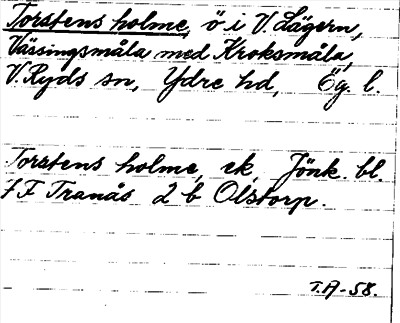 Torstens holme, ö i V. Lägern,
Vässingsmåla med Kroksmåla,
V. Ryds sn, Ydre hd, Ög. l.
Torstens holme, ek, Jönk. bl.
7F Tranås 2 b Olstorp.
T.A-58.